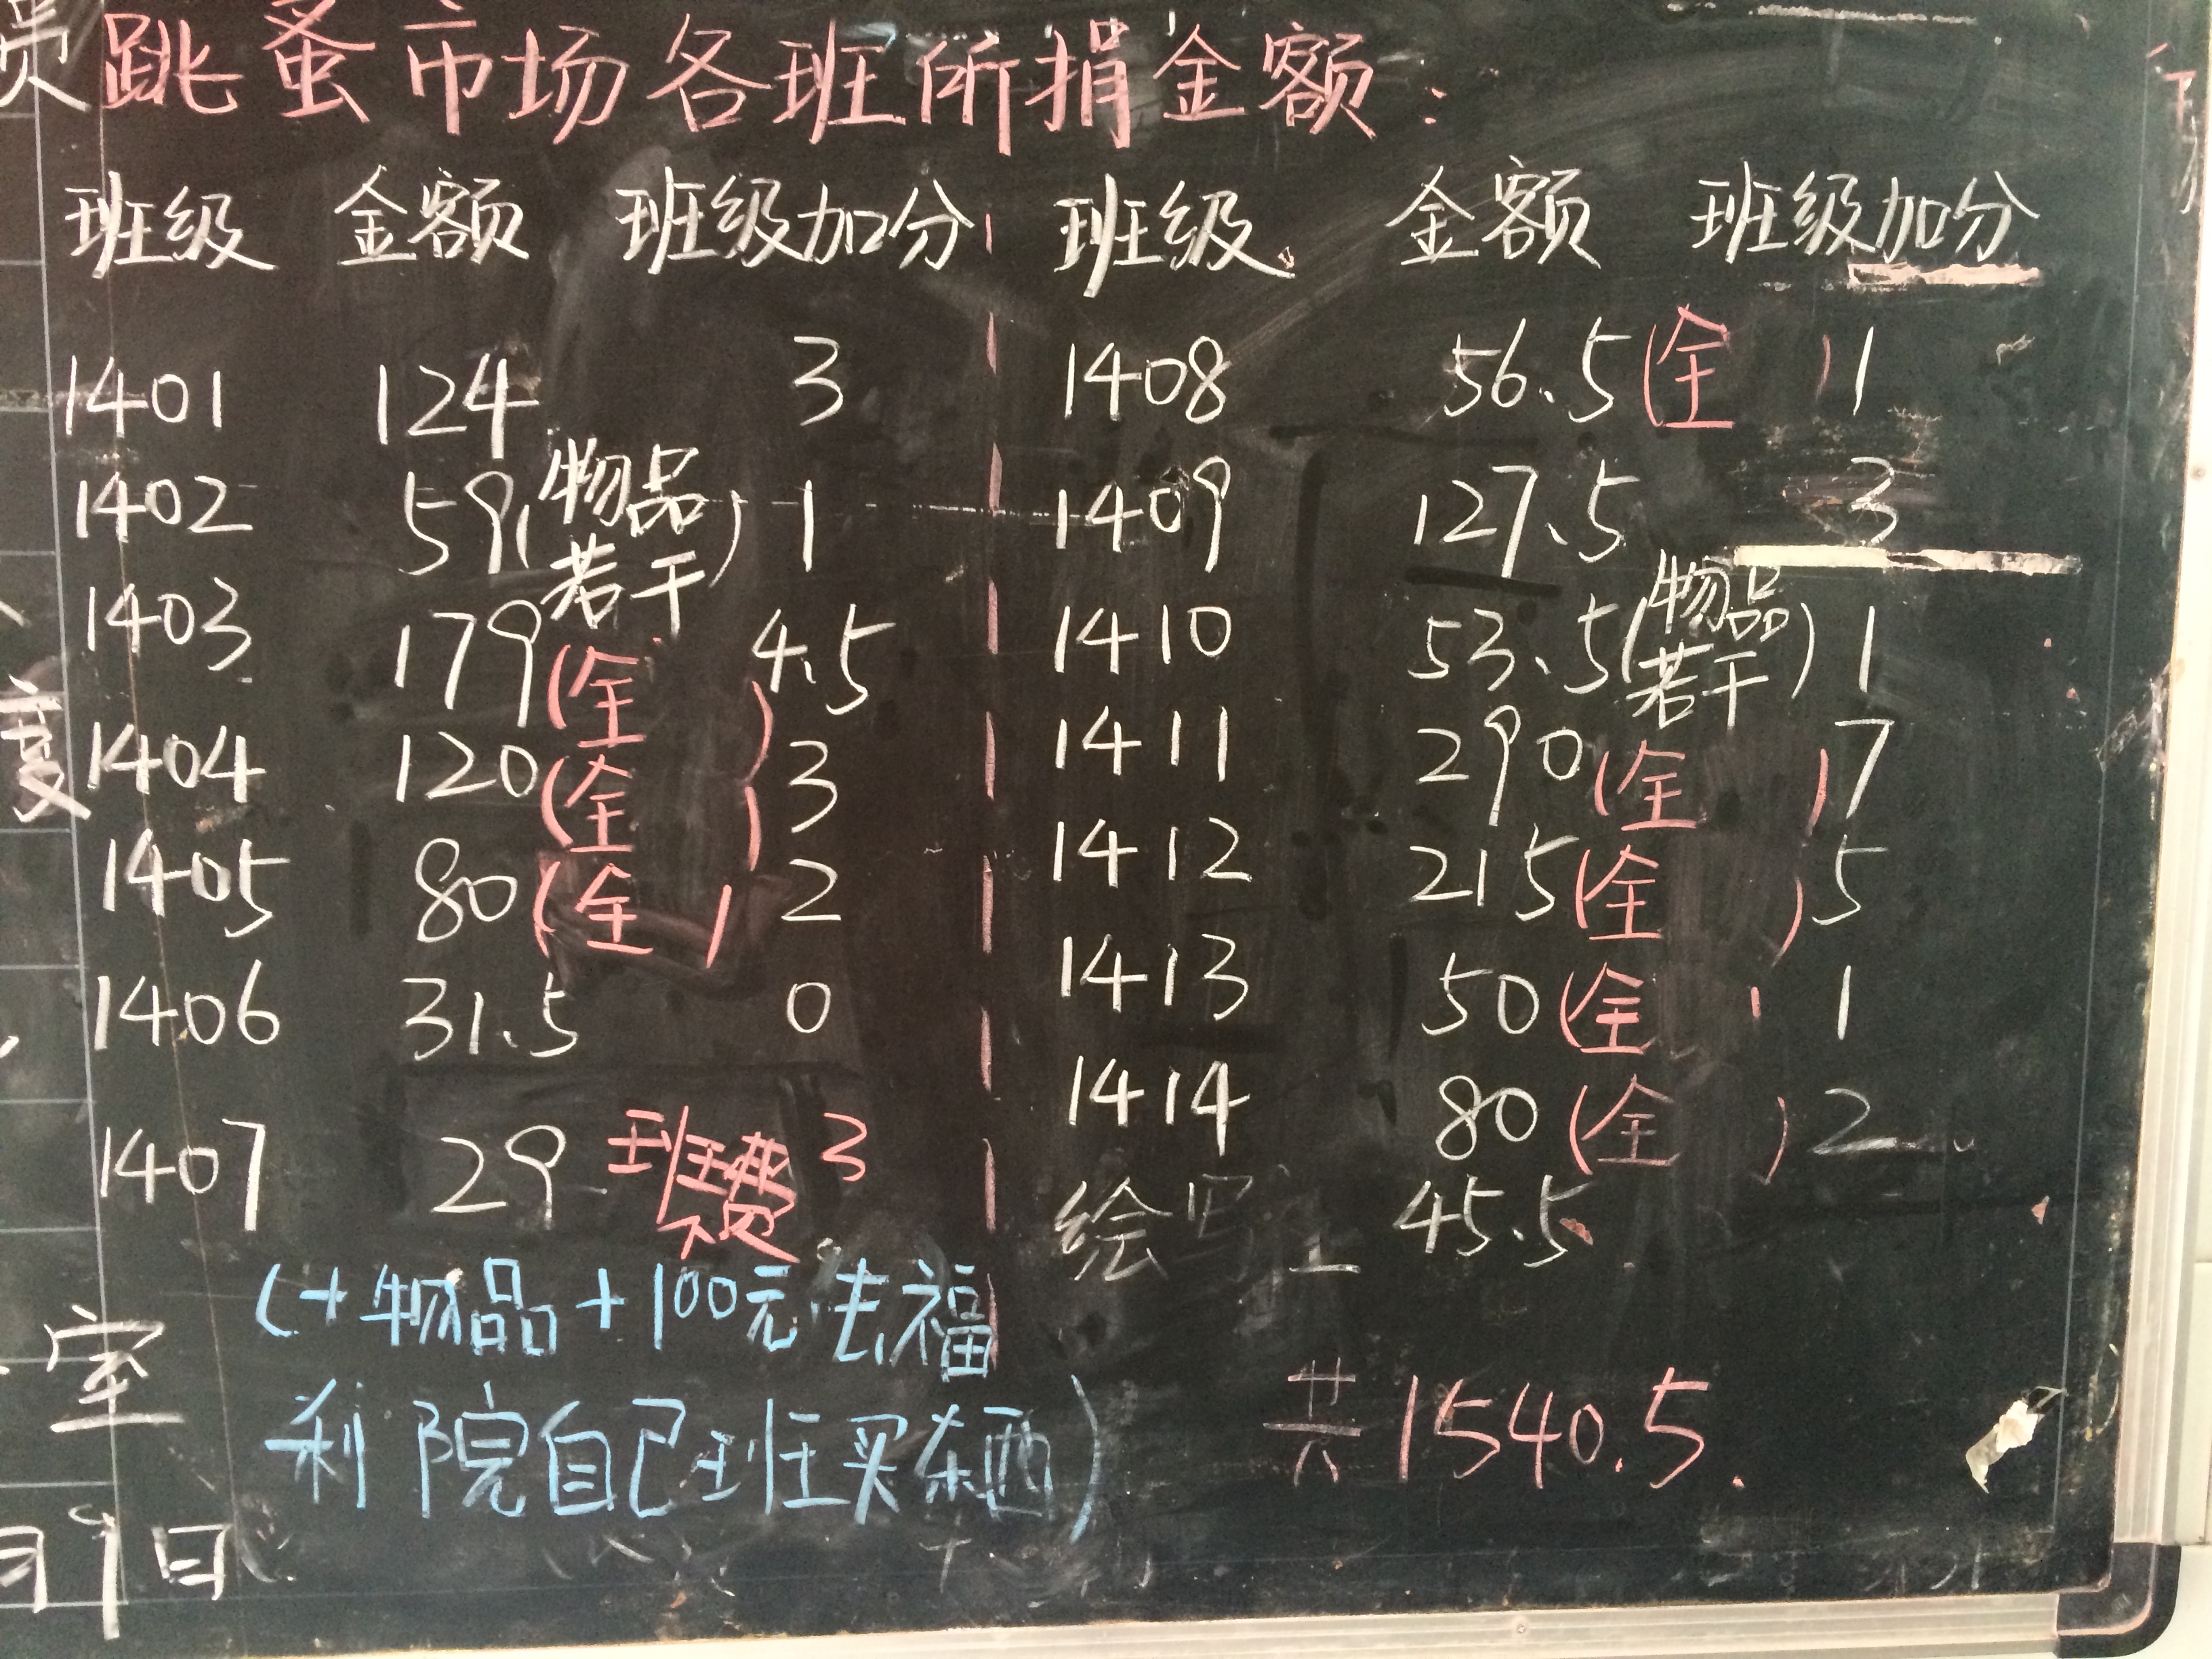 员
跳蚤市场各班所捐金额:
班级 金额 班级加分 班级 金额 班级加分
1401 124 3 1408 56.5(全 )1
1402 59(物品若干)1 1409 127.5 3
1403 179(全 )4.5 1410 53.5(物品若干)1
1404 120(全 )3 1411 290(全 )7
1405 80(全 )2 1412 215(全 )5
1406 31.5 0 1413 50(全 )1
1407 29 班费 3 1414 80(全 )2
绘 45.5
(+物品+100元去福
利院自己班买东西)
共1540.5.
室
月9日